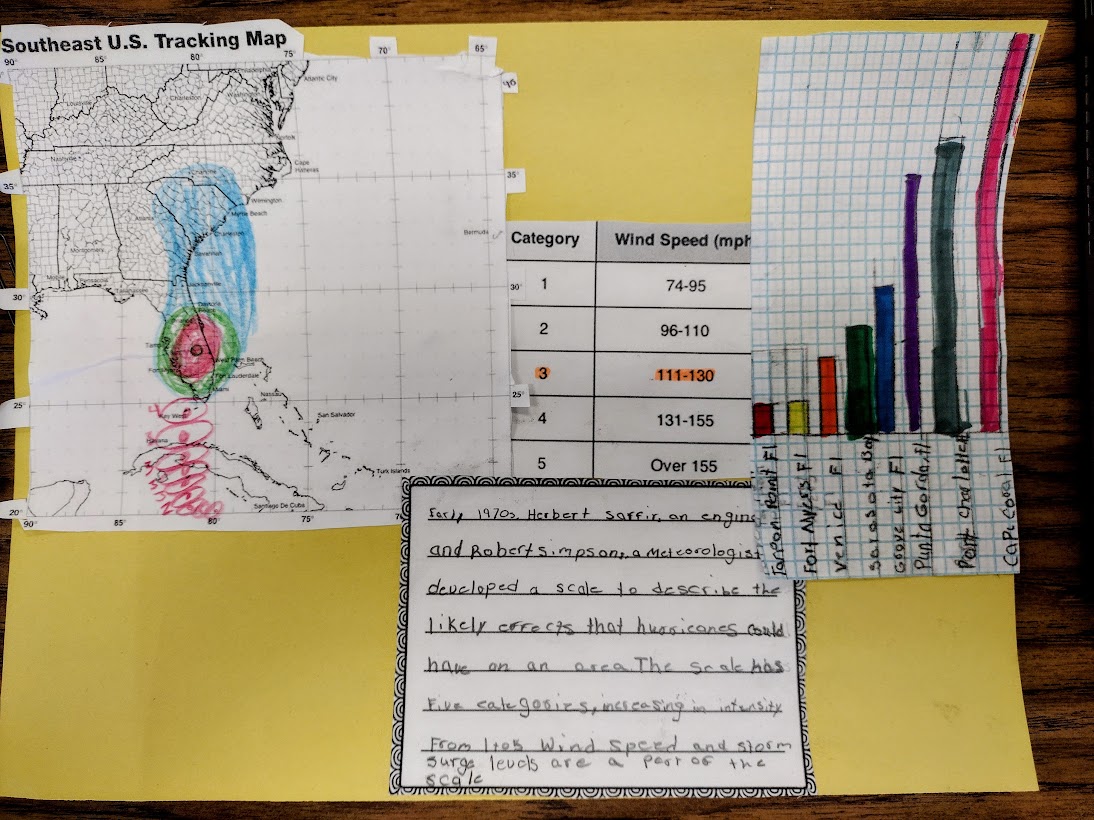 Southeast U.S. Tracking Map
90° 85° 80° 75° 70° 65°
40
35°
30°
25°
20°
90° 85° 80° 75°
35°
30°
25°
Philadelphia
Atlantic City
Louisville
Charleston
Washington
Norfolk
Nashville
Cape
Hatteras
Charlotte
Wilmington
Atlanta
Myrtle Beach
Charleston
Bermuda
Savannah
Montgomery
Mobile
Pensacola
Jacksonville
Tallahassee
Daytona
Beach
West Palm Beach
Fort Lauderdale
Miami
Nassau
Key West
San Salvador
Havana
Turk Islands
Santiago De Cuba
Category Wind Speed (mph
1 74-95
2 96-110
3 111-130
4 131-155
5 Over 155
Early 1970s, Herbert Saffir, an engine
and Robert simpson, a Meteorologist
developed a scale to describe the
likely effects that hurricanes could
have on an area. The scale has
Five categories, increasing in intensity
From 1 to 5 Wind Speed and storm
surge levels are a part of the
scale
Tarpon Point Fl
Fort Myers Fl
Venice Fl
Sarasota Bay
Goove City Fl
Punta Gorda Fl
Port Charlotte
Cape Coral Fl